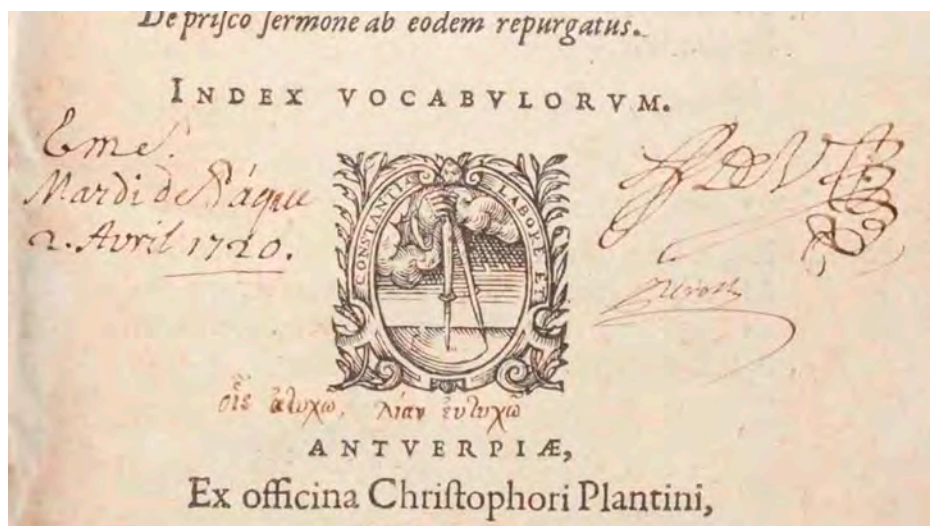 De priſco ſermone ab eodem repurgatus.
INDEX VOCABVLORVM.
Eme.
Mardi de Pâque
2. Avril 1720.
CONSTANTIA LABORE ET
οἷς ἀτυχῶ, λίαν εὐτυχῶ
ANTVERPIÆ,
Ex officina Chriſtophori Plantini,